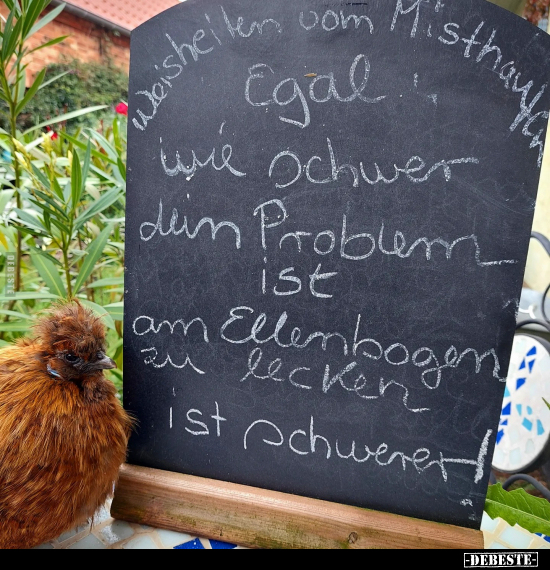 Weisheiten vom Misthaufen
Egal
wie schwer
dein Problem
ist
am Ellenbogen
zu lecken
ist schwerer!
-DEBESTE-